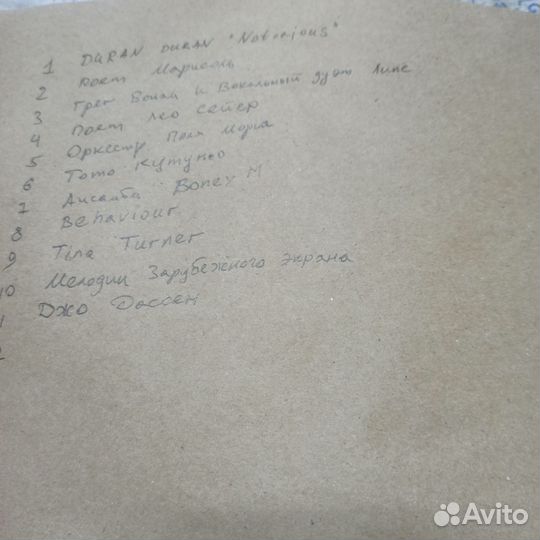 1 DURAN DURAN "Notorious"
2 Поёт Марисоль
3 Грег Бонам и Вокальный дуэт Липс
4 Поёт Лео Сейер
5 Оркестр Поля Мориа
6 Тото Кутуньо
7 Ансамбль Boney M
8 Behaviour
9 Tina Turner
10 Мелодии Зарубежного экрана
Джо Дассен
Avito